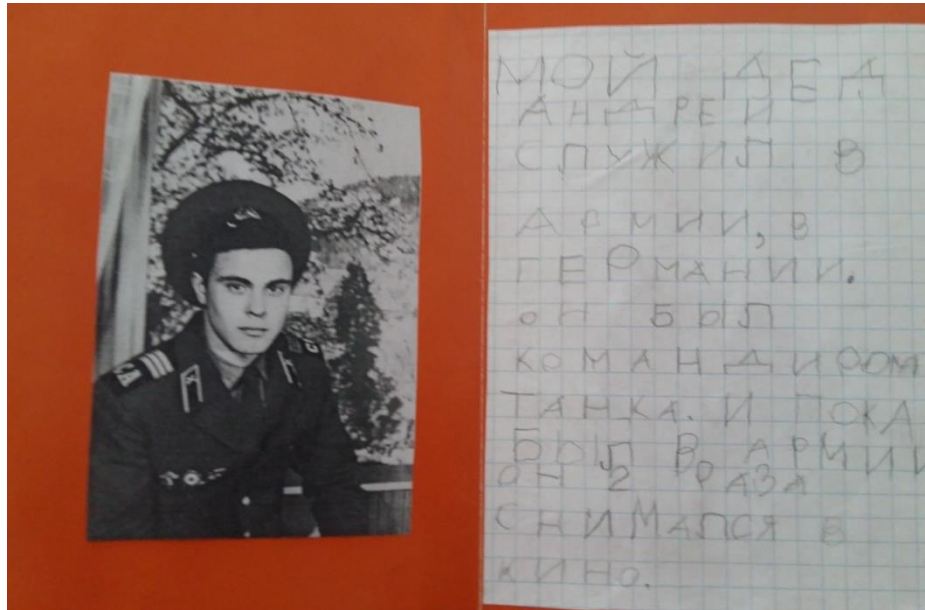 МОЙ ДЕД
АНДРЕЙ
СЛУЖИЛ В
АРМИИ, В
ГЕРМАНИИ.
ОН БЫЛ
КОМАНДИРОМ
ТАНКА. И ПОКА
БЫЛ В АРМИИ
ОН 2 РАЗА
СНИМАЛСЯ В
КИНО.